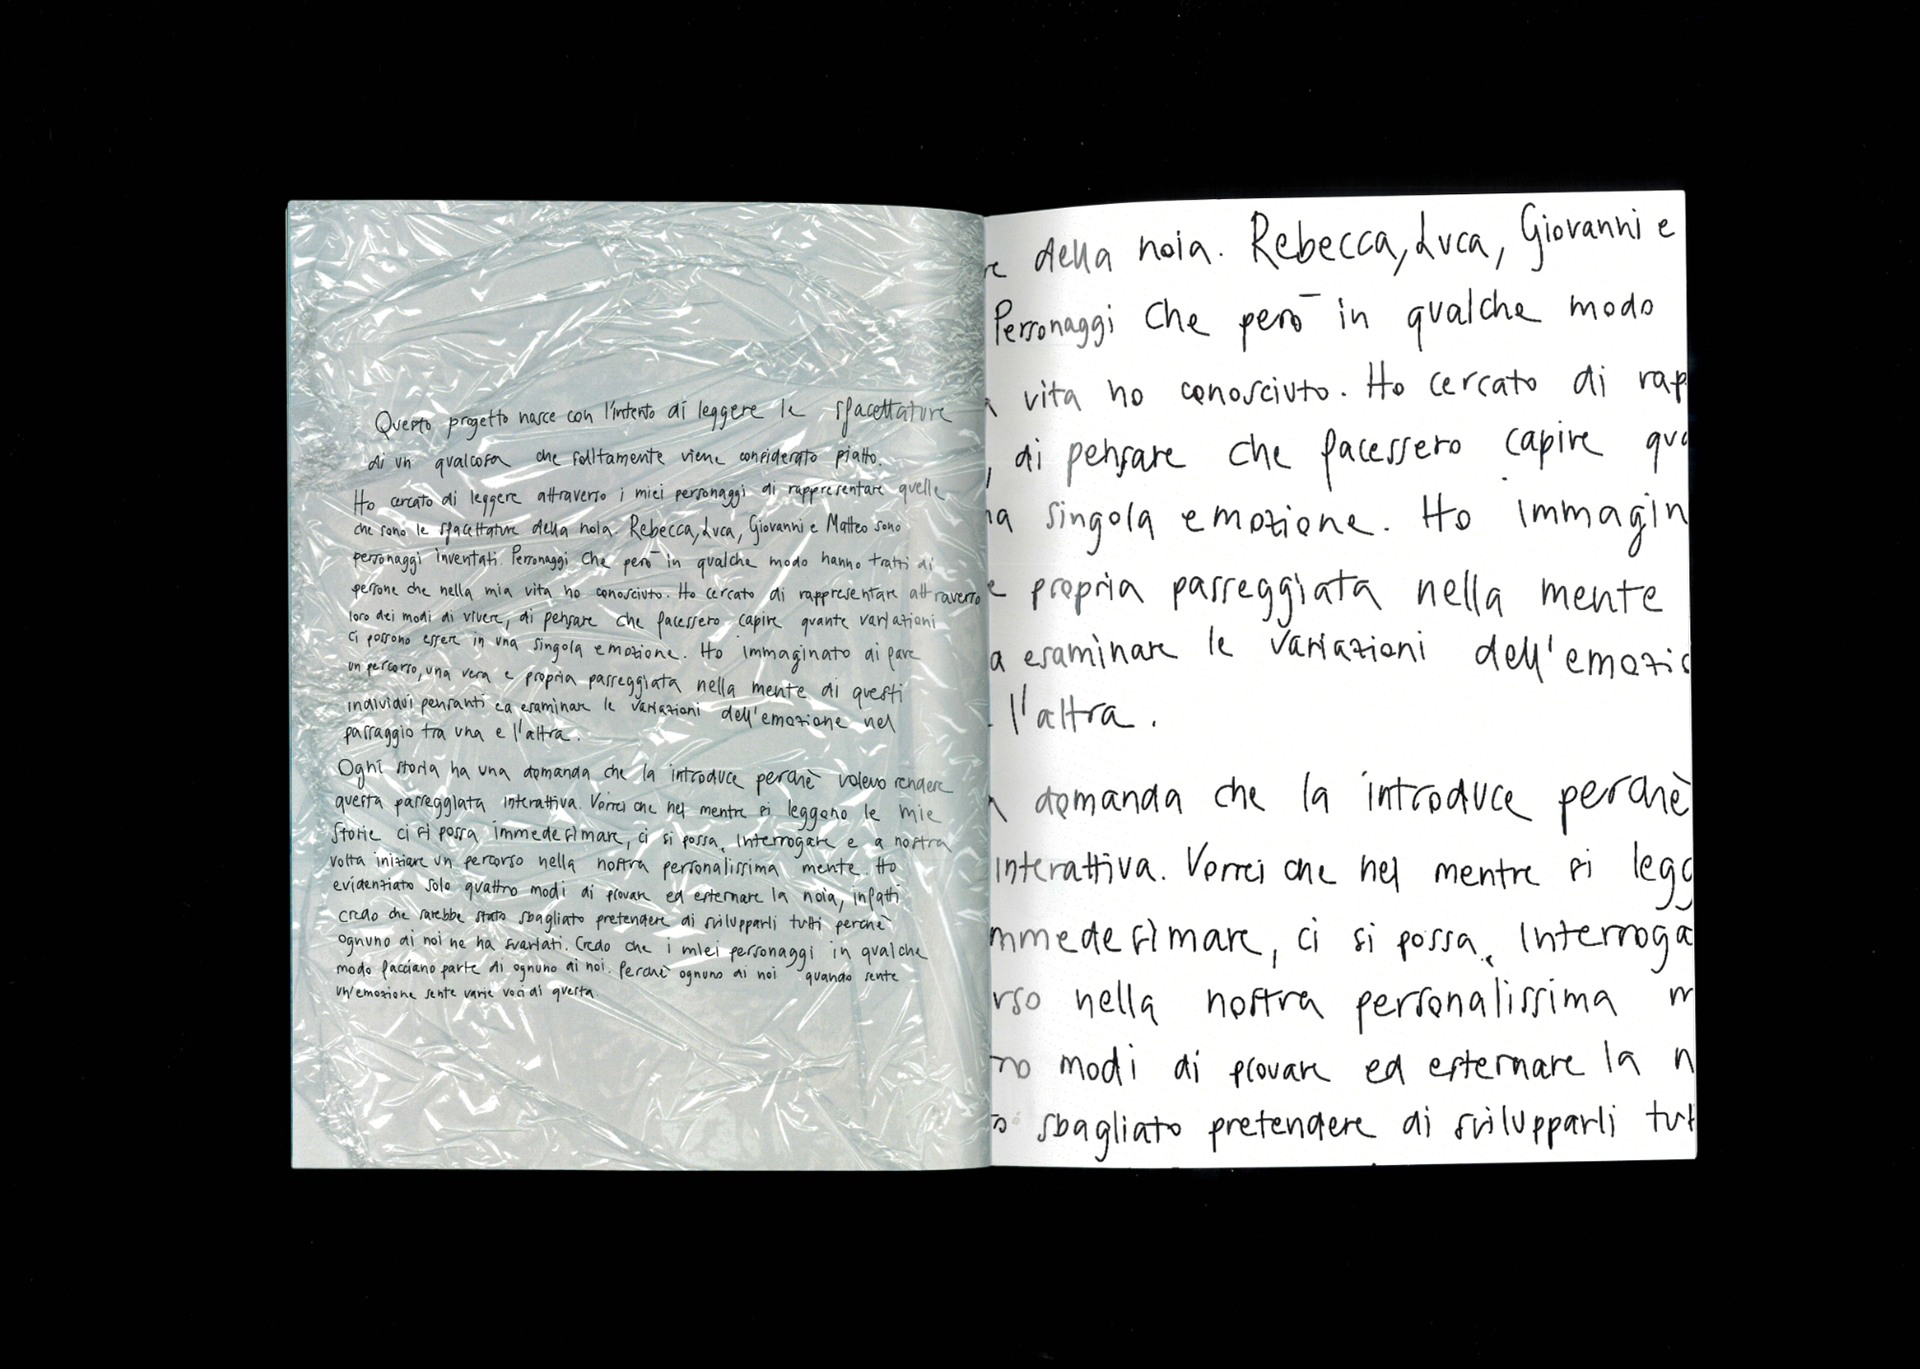 Questo progetto nasce con l'intento di leggere le sfaccettature
di un qualcosa che solitamente viene considerato piatto.
Ho cercato di leggere attraverso i miei personaggi di rappresentare quelle
che sono le sfaccettature della noia. Rebecca, Luca, Giovanni e Matteo sono
personaggi inventati. Personaggi che però in qualche modo hanno tratti di
persone che nella mia vita ho conosciuto. Ho cercato di rappresentare attraverso
loro dei modi di vivere, di pensare che facessero capire quante variazioni
ci possono essere in una singola emozione. Ho immaginato di fare
un percorso, una vera e propria passeggiata nella mente di questi
individui pensanti ed esaminare le variazioni dell'emozione nel
passaggio tra una e l'altra.
Ogni storia ha una domanda che la introduce perchè volevo rendere
questa passeggiata interattiva. Vorrei che nel mentre si leggano le mie
storie ci si possa immedesimare, ci si possa interrogare e a nostra
volta iniziare un percorso nella nostra personalissima mente. Ho
evidenziato solo quattro modi di provare ed esternare la noia, infatti
credo che sarebbe stato sbagliato pretendere di svilupparli tutti perchè
ognuno di noi ne ha svariati. Credo che i miei personaggi in qualche
modo facciano parte di ognuno di noi. Perchè ognuno di noi quando sente
un'emozione sente varie voci di questa.
e della noia. Rebecca, Luca, Giovanni e
Personaggi che però in qualche modo
vita ho conosciuto. Ho cercato di rap
, di pensare che facessero capire qua
na singola emozione. Ho immagin
e propria passeggiata nella mente
a esaminare le variazioni dell'emozio
l'altra.
domanda che la introduce perchè
interattiva. Vorrei che nel mentre si legg
mmedesimare, ci si possa, interroga
rso nella nostra personalissima m
ro modi di provare ed esternare la n
o sbagliato pretendere di svilupparli tut